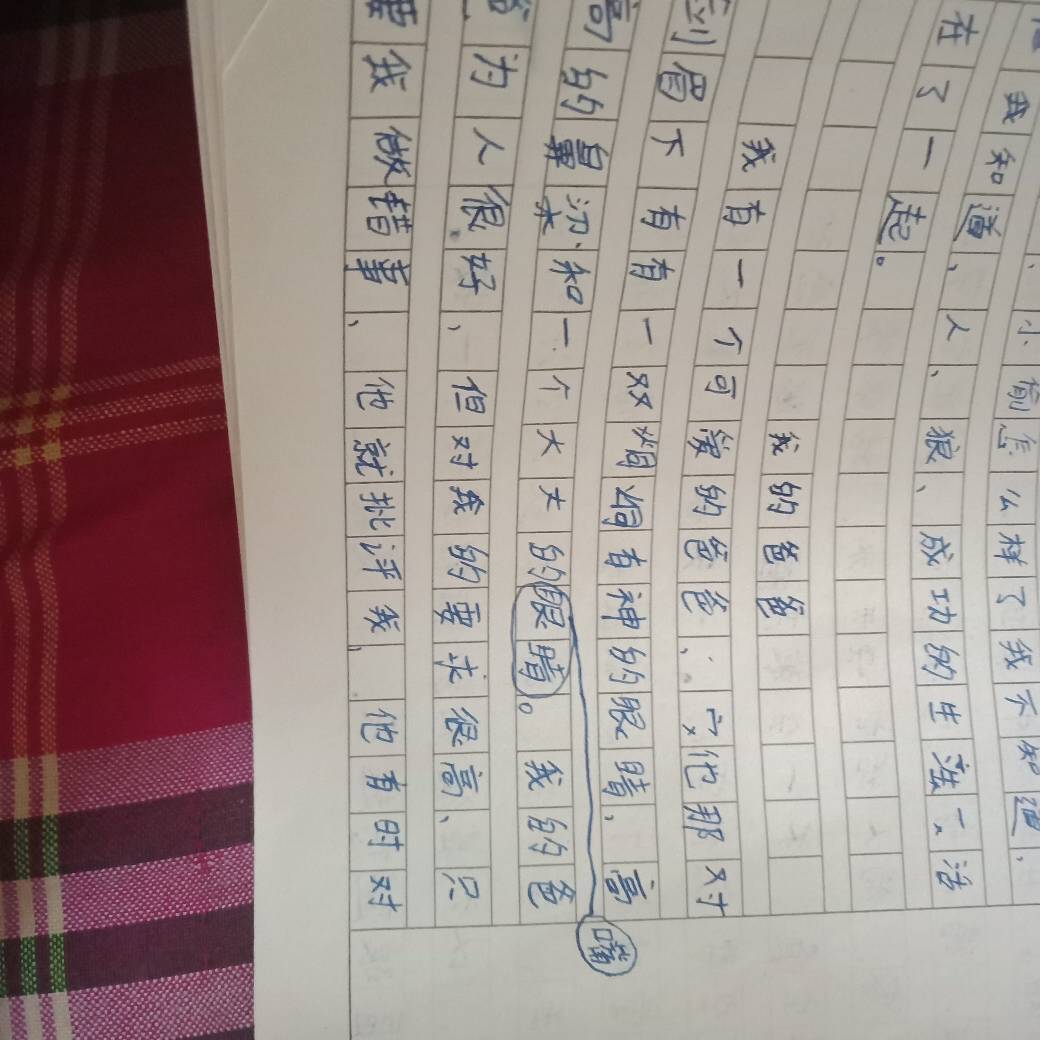 小偷怎么样了我不知道.
我知道、人、狼、成功的生活
在了一起。
我的爸爸
我有一个可爱的爸爸，他那对
到眉下有有一双炯炯有神的眼睛，高
高的鼻梁和一个大大的眼睛。我的爸
嘴
爸为人很好，但对我的要求很高、只
要我做错事、他就批评我，他有时对